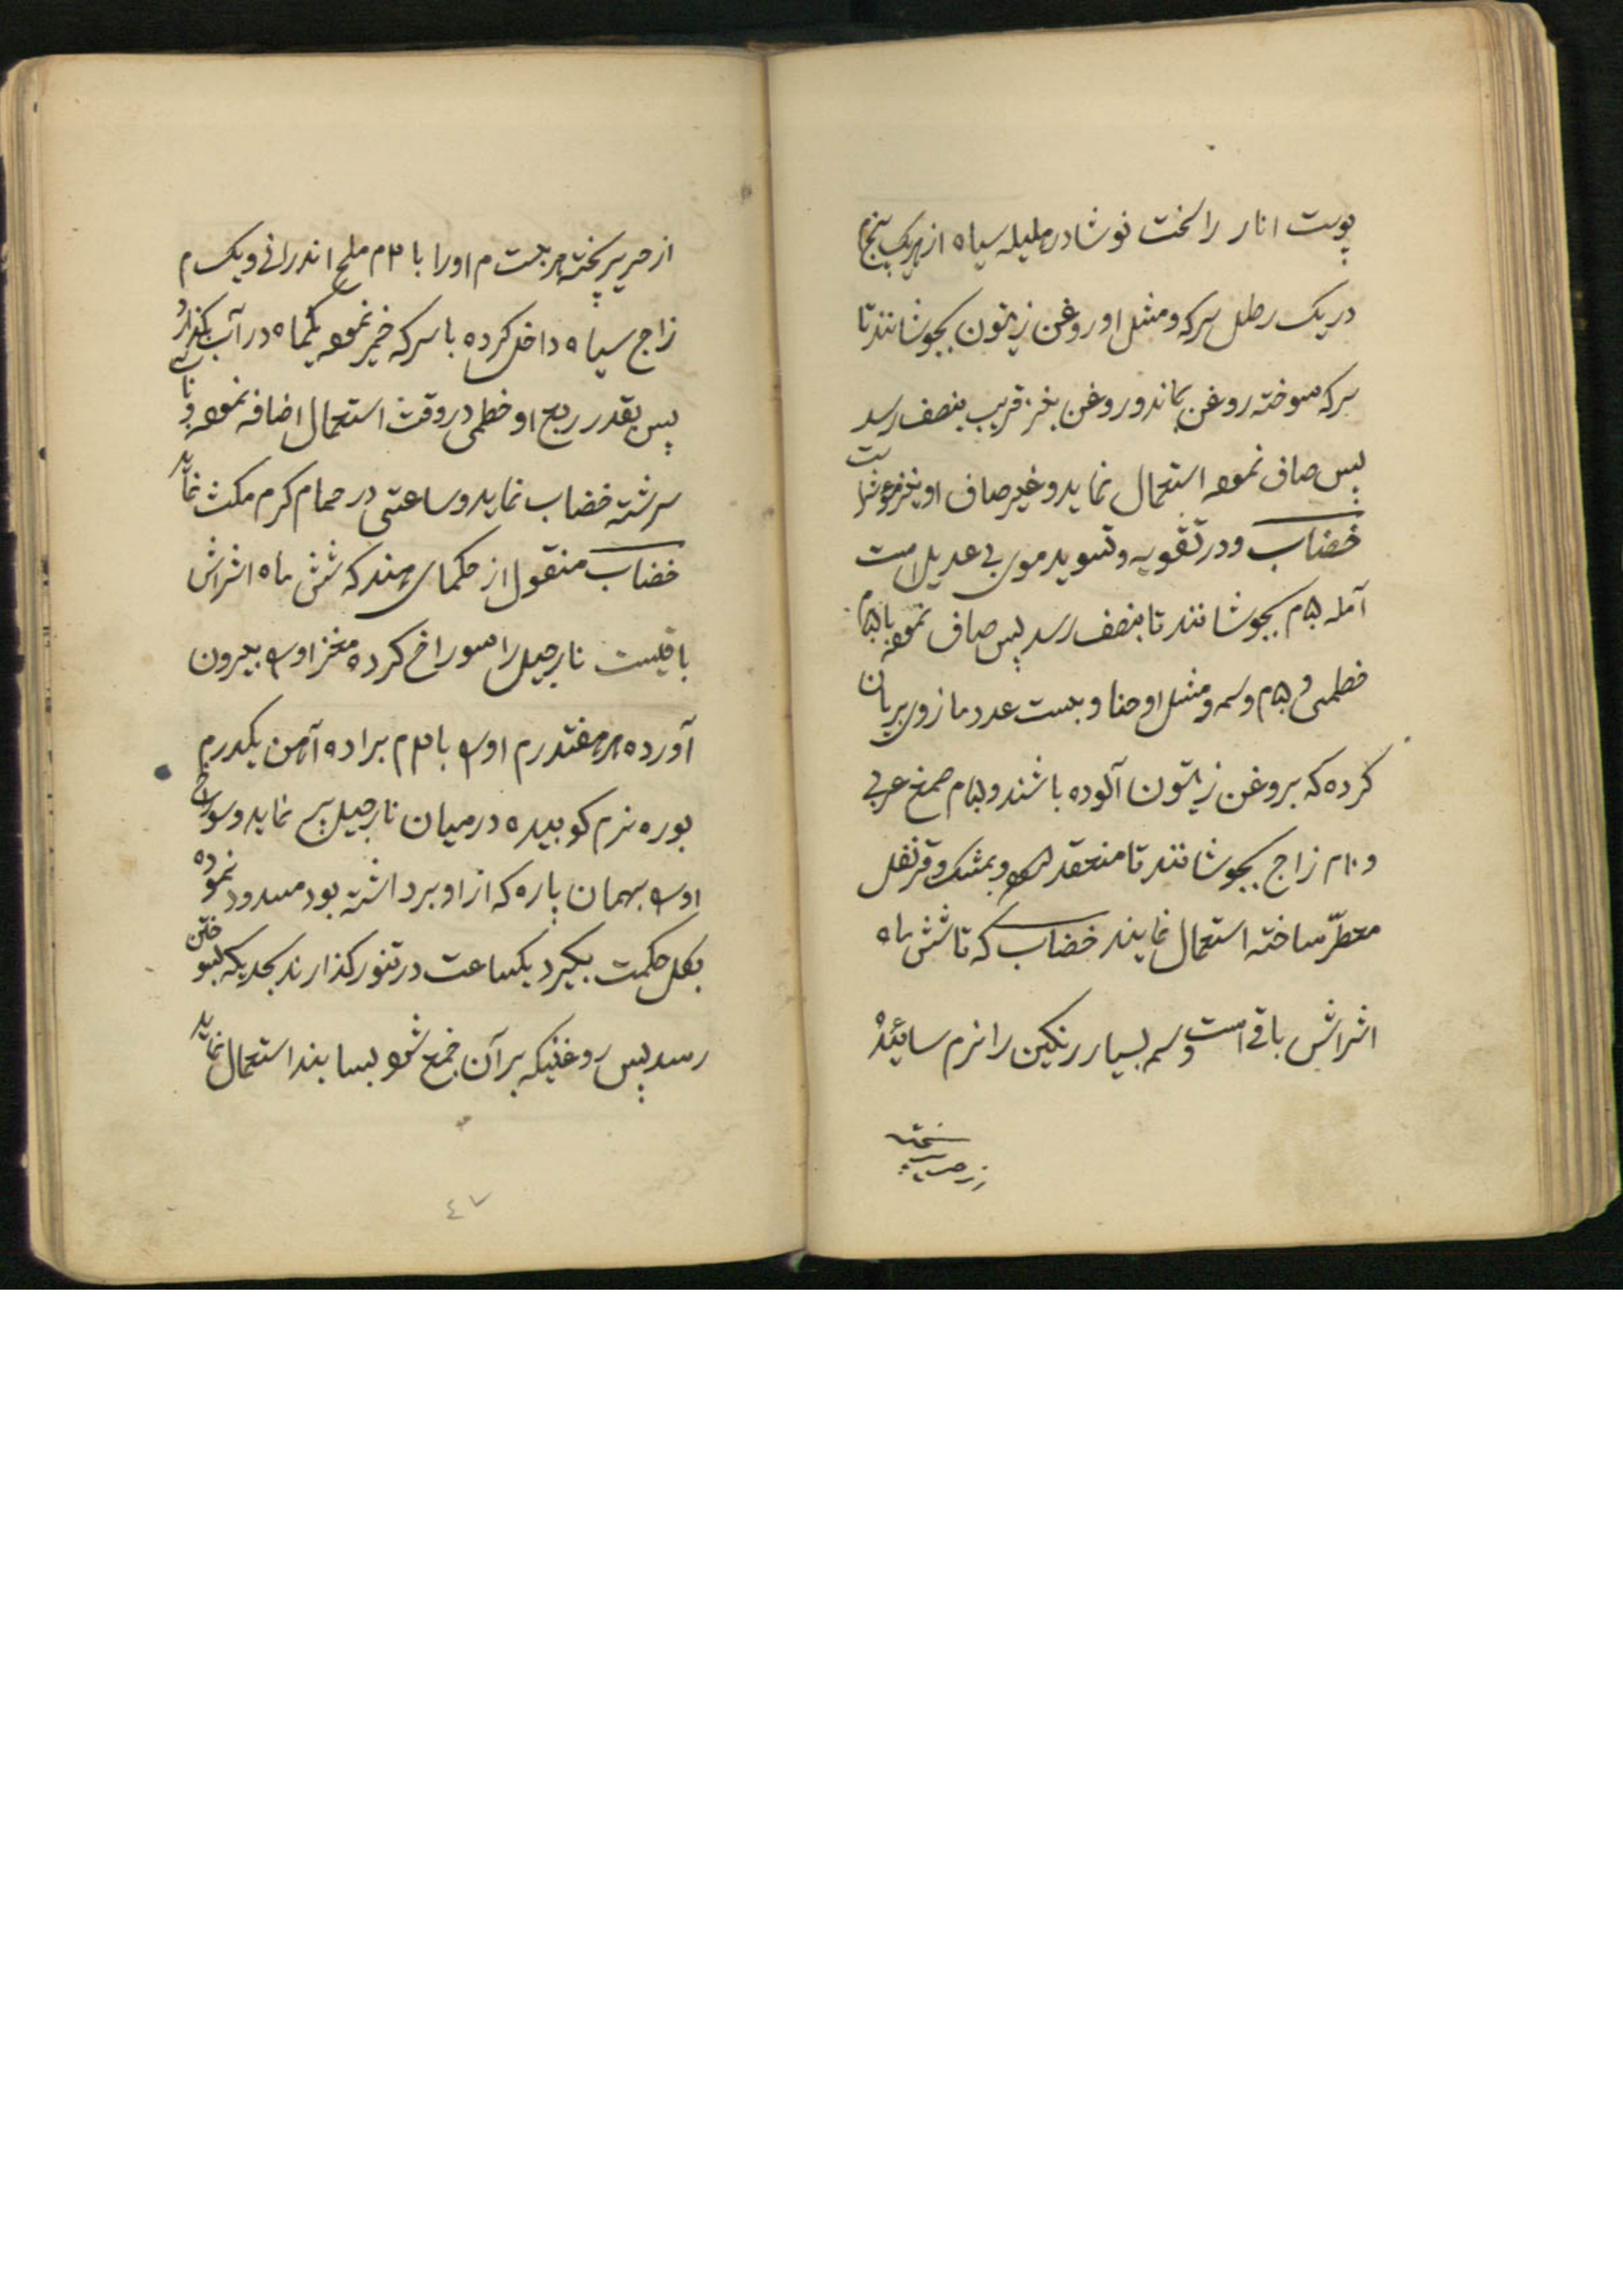 پوست انار راسخت نوشادر هلیله سیاه از هریک پنج م
در یک رطل سرکه و مثل او روغن زیتون بجوشانند تا
سرکه سوخته روغن بماند و روغن نیز قریب بنصف رسد
پس صاف نموده استعمال نماید و غیر صاف او نیز مؤثر است
خضاب و در تقویه و تسوید موی بی عدیل است
آمله ۵۰م بجوشانند تا بنصف رسد پس صاف نموده با ۵م
خطمی و ۵۰م وسمه و مثل او حنا و بیست عدد مازوی بریان
کرده که بروغن زیتون آلوده باشند و ۵م صمغ عربی
و ۱۰م زاج بجوشانند تا منعقد شود و بمشک و قرنفل
معطّر ساخته استعمال نمایند خضاب که تا شش ماه
اثراش باقی است وسمه بسیار رنکین را نرم سائیده
از حریر پخته هر بیست م او را با ۳م ملح اندرانی و یک م
زاج سیاه داخل کرده با سرکه خمیر نموده یکماه در آب بکذارد
پس بقدر ربع او خطمی در وقت استعمال اضافه نموده و با
سرشته خضاب نماید و ساعتی در حمام کرم مکث نماید
خضاب منقول از حکمای هند که شش ماه اثراش
باقیست نارجیل را سوراخ کرده مغز اورا بیرون
آورده هر هفتدرم اورا با ۳م براده آهن یکدرم
بوره نرم کوبیده در میان نارجیل پر نماید و سوراخ
اورا بهمان پاره که از او برداشته بود مسدود نموده
بکل حکمت بکیرد یکساعت در تنور کذارند بحدیکه بسوختن
رسد پس روغنیکه بر آن جمع شود بسایند استعمال نماید
٤٧